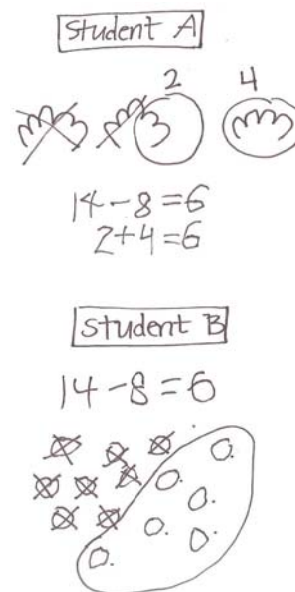 Student A
2 4
14-8=6
2+4=6
Student B
14-8=6